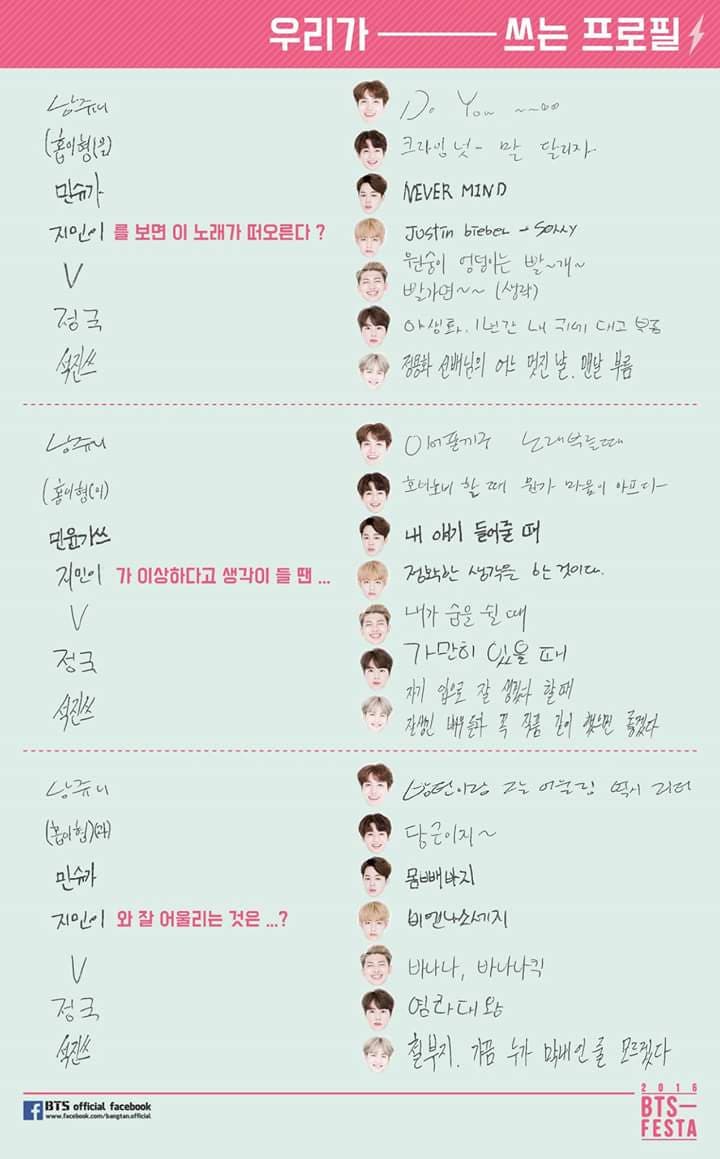 우리가 쓰는 프로필
남쥬니 Do You ~~∞
(홉이형(을) 크라잉넛- 말 달리자
민슈가 NEVER MIND
지민이 를 보면 이 노래가 떠오른다 ? Justin bieber → sorry
V 원숭이 엉덩이는 빨~개~
빨가면~~ (생략)
정국 야생화. 1년간 내 귀에 대고 부름
석진쓰 정용화 선배님의 어느 멋진 날. 맨날 부름
남쥬니 이어폰끼구 노래부를때
(홉이형(이) 호너노니 할 때 뭔가 마음이 아프다
민윤기쓰 내 얘기 들어줄 때
지민이 가 이상하다고 생각이 들 땐 ... 정확한 생각을 한것이다.
V 내가 숨을 쉴 때
정국 가만히 있을 때
석진쓰 자기 입으로 잘 생겼다 할때
잘생긴 배우분과 꼭 작품 같이 했으면 좋겠다
남쥬니 어울림 역시 리더
(홉이형)(과) 당근이지~
민슈가 몸빼바지
지민이 와 잘 어울리는 것은 ...? 비엔나소세지
V 바나나, 바나나킥
정국 염라대왕
석진쓰 철부지. 가끔 누가 막내인줄 모르겠다
BTS official facebook
www.facebook.com/bangtan.official
2016
BTS—
FESTA